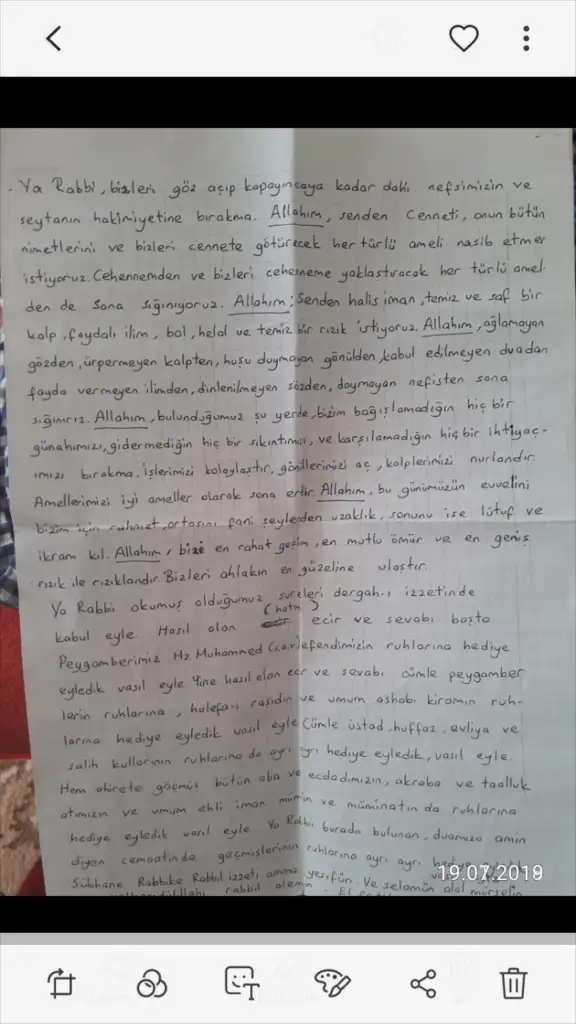 . Ya Rabbi, bizleri göz açıp kapayıncaya kadar dahi nefsimizin ve
şeytanın hakimiyetine bırakma. Allahım, senden Cenneti, onun bütün
nimetlerini ve bizleri cennete götürecek her türlü ameli nasib etmeni
istiyoruz. Cehennemden ve bizleri cehenneme yaklaştıracak her türlü amel-
den de Sana Sığınıyoruz. Allahım; Senden halis iman, temiz ve saf bir
kalp, faydalı ilim, bol, helal ve temiz bir rızık istiyoruz. Allahım, ağlamayan
gözden, ürpermeyen kalpten, huşu duymayan gönülden, kabul edilmeyen duadan
fayda vermeyen ilimden, dinlenilmeyen sözden, doymayan nefisten sana
sığınırız. Allahım, bulunduğumuz şu yerde, bizim bağışlamadığın hiç bir
günahımızı, gidermediğin hiç bir sıkıntımızı, ve karşılamadığın hiç bir ihtiyac-
ımızı bırakma. İşlerimizi kolaylaştır, gönüllerimizi aç, kalplerimizi nurlandır.
Amellerimizi iyi ameller olarak sona erdir. Allahım, bu günümüzün evvelini
bizim için rahmet, ortasını fani şeylerden uzaklık, sonunu ise lütuf ve
ikram kıl. Allahım, bizi en rahat geçim, en mutlu ömür ve en geniş
rızık ile rızıklandır. Bizleri ahlakın en güzeline ulaştır.
Ya Rabbi okumuş olduğumuz sureleri dergah-ı izzetinde
kabul eyle. Hasıl olan (hatm) ecir ve sevabı başta
Peygamberimiz Hz. Muhammed (s.a.v) efendimizin ruhlarına hediye
eyledik vasıl eyle Yine hasıl olan ecr ve sevabı cümle peygamber
lerin ruhlarına, hulefa-i raşidin ve umum ashabı kiramın ruh-
larına hediye eyledik vasıl eyle Cümle üstad, huffaz, evliya ve
salih kullarının ruhlarına da ayrı ayrı hediye eyledik, vasıl eyle.
Hem ahirete göçmüş bütün aba ve ecdadımızın, akraba ve taalluk
atımızın ve umum ehli iman mümin ve müminatın da ruhlarına
hediye eyledik vasıl eyle. Ya Rabbi burada bulunan, duamıza amin
diyen cemaatinde geçmişlerinin ruhlarına ayrı ayrı hediye
Sübhane Rabbike Rabbil izzeti, amma yesifün. Ve selamün alel mürselin
rabbil alemin.
19.07.2019